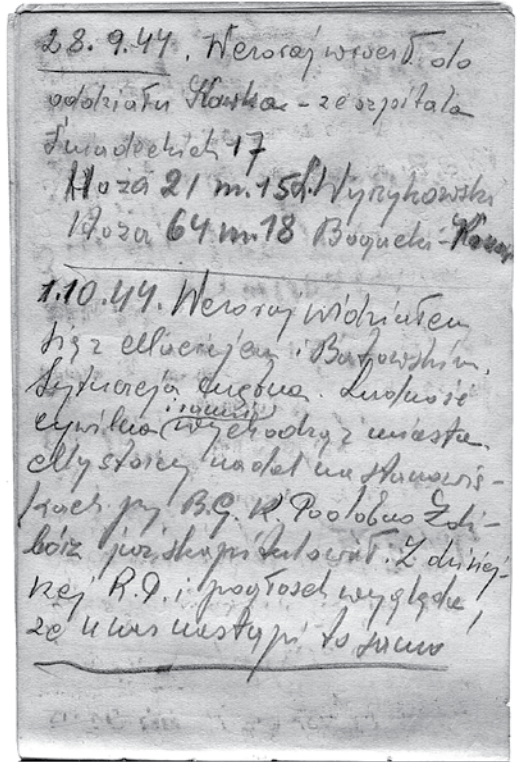 28.9.44. Wczoraj wrócił do
oddziału Kawka - ze szpitala
Śniadeckich 17
Hoża 21 m. 15 Wyrzykowski
Hoża 64 m. 18 Bogucki -
1.10.44. Wczoraj widziałem
się z Maciejem i Butowskim.
Sytuacja ciężka. Ludność
cywilna i ranni wychodzą z miasta.
My stoimy nadal na stanowis-
kach przy B.G.K. Podobno Żoli-
bórz już skapitulował. Z dzisiej-
szej R.D. i pogłosek wygląda,
że u nas nastąpi to samo